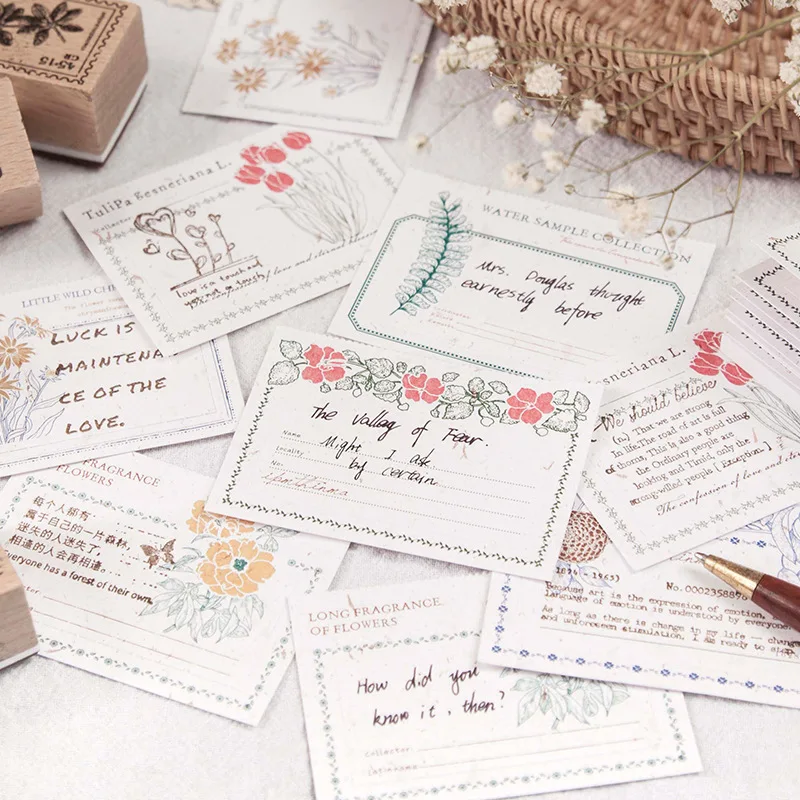 45-15
TuliPa Gesneriana L.
Collector
love is a touch and
yet not a touch
of love and eternal
WATER SAMPLE COLLECTION
Mrs. Douglas thought
earnestly before
LITTLE WILD
LUCK IS
MAINTENA
CE OF THE
LOVE.
The vallag of Fear.
Name
Might I ask
Locality
by certain
No.
Gesneriana L.
We should believe
(n) That we are strong
In life.The road ot is full
of thorns. This is also a good thing
the Ordinary people are
looking and Timid, only the
strongwilled people [Eruption.]
The confession of love and
FRAGRANCE
FLOWERS
每个人都有
属于自己的一片森林,
迷失的人迷失了,
相逢的人会再相逢。
Everyone has a forest of their own.
1894 - 1963)
No.0002358876
Because art is the expression of emotion.
language of emotion is understood by everyone
As long as there is change in my life —
and unforeseen stimulation. I am ready to
LONG FRAGRANCE
OF FLOWERS
How did you
know it, then?
collector
latinname